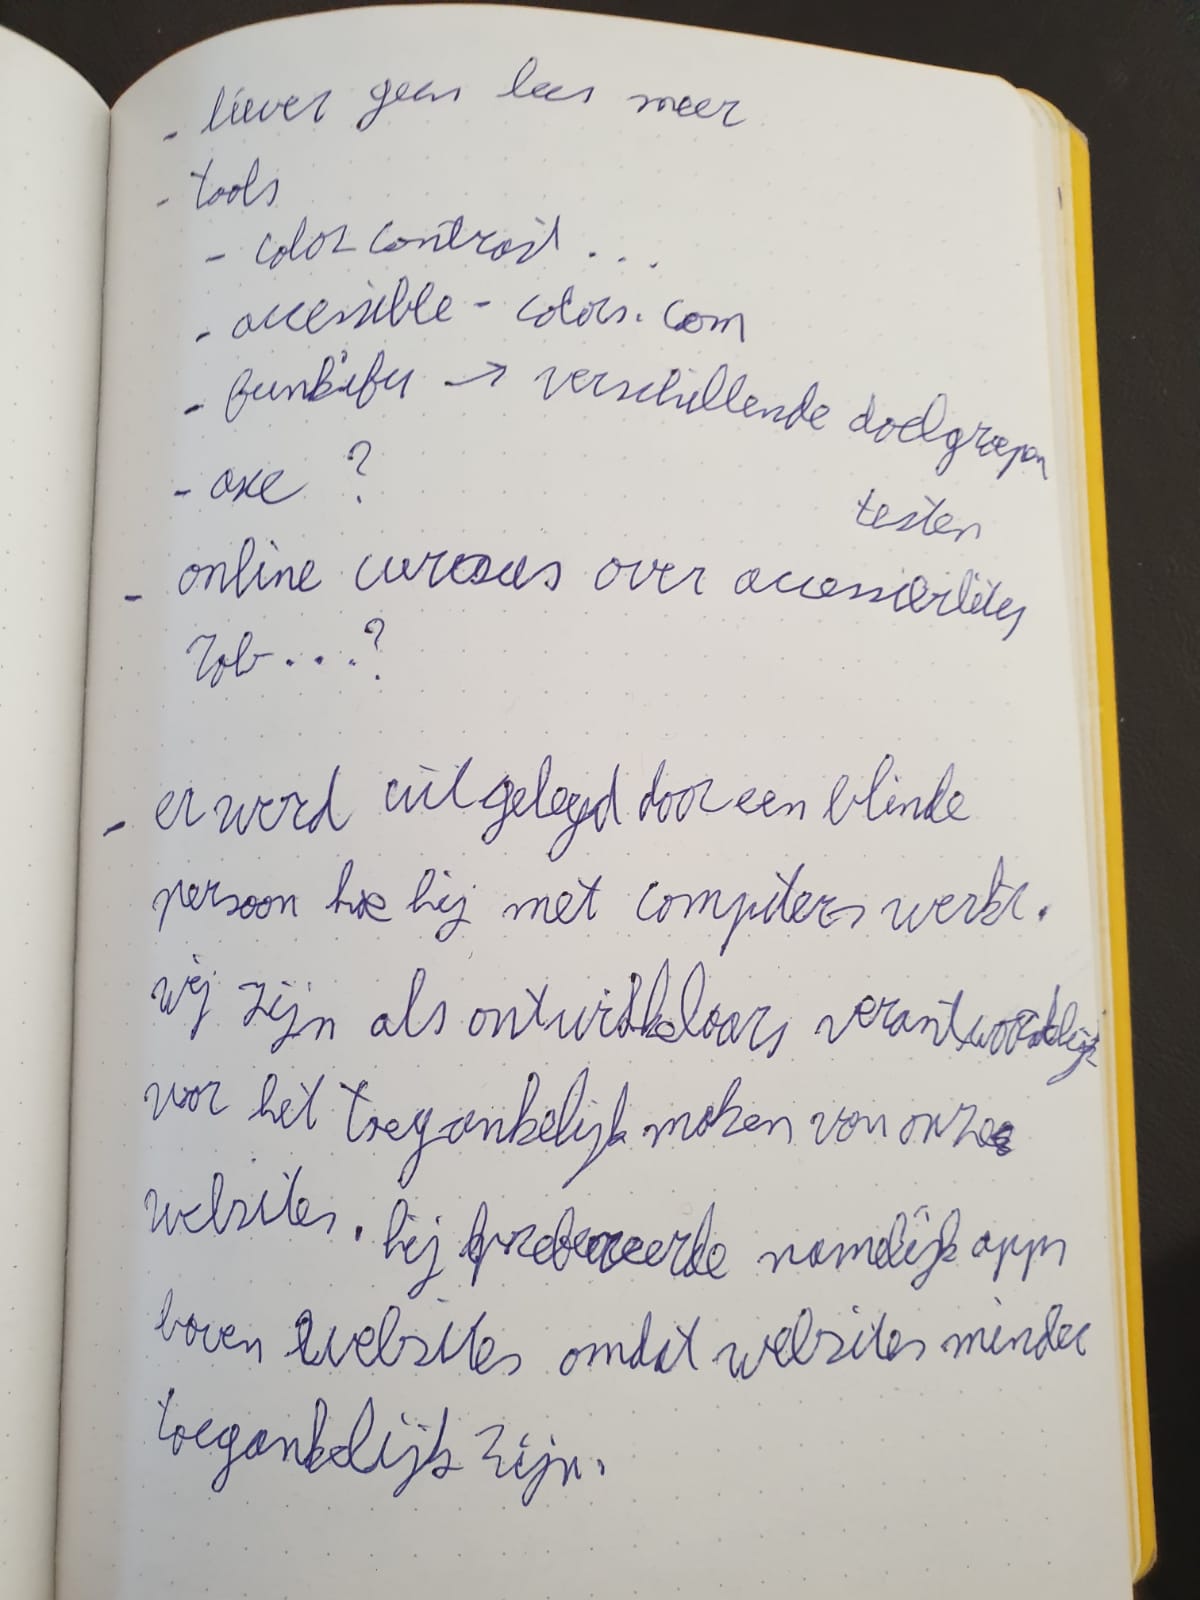 - liever geen lees meer
- tools
- color contrast ...
- accessible-colors.com
- funkify → verschillende doelgroepen
testen
- axe ?
- online cursus over accessibility
Rob ...?
- er werd uitgelegd door een blinde
persoon hoe hij met computers werkt.
wij zijn als ontwikkelaars verantwoordelijk
voor het toegankelijk maken van onze
websites. hij prefereerde namelijk apps
boven websites omdat websites minder
toegankelijk zijn.